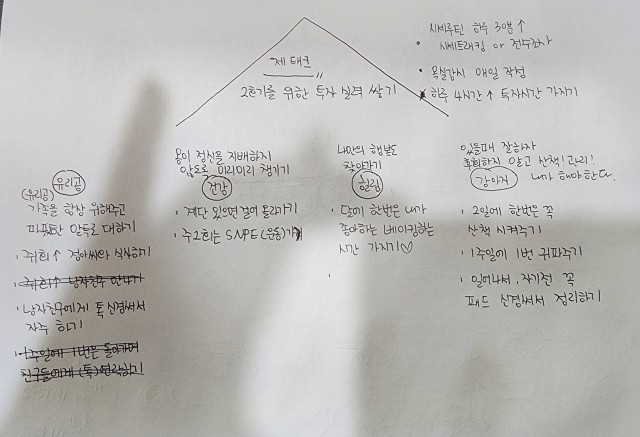 시세루틴 하루 30분↑
· 시세트래킹 or 전수조사
· 목실감시 매일 작성
* 하루 4시간↑ 독자시간 가지기
재태크
2호기를 위한 투자 실력 쌓기
유리공
(유리공)
가족을 항상 위해주고
따뜻한 말투로 대하기
· 주1회↑ 식사하기
· 주1회↑ 남자친구
· 남자친구에게 톡 신경써서
자주 하기
· 1주일에 1번은 돌아가며
친구들에게 (톡)연락하기
몸이 정신을 지배하지
않도록 미리미리 챙기기
건강
· 계단 있으면 걸어 올라가기
· 주2회는 SNPE(운동)가기
나만의 행복도
찾아가기
힐링
· 달에 한번은 내가
좋아하는 베이킹하는
시간 가지기♡
·
있을때 잘하자
후회하지 말고 산책! 관리!
강아지 내가 해야한다.
· 2일에 한번은 꼭
산책 시켜주기
· 1주일에 1번 귀파주기
· 일어나서, 자기전 꼭
패드 신경써서 정리하기